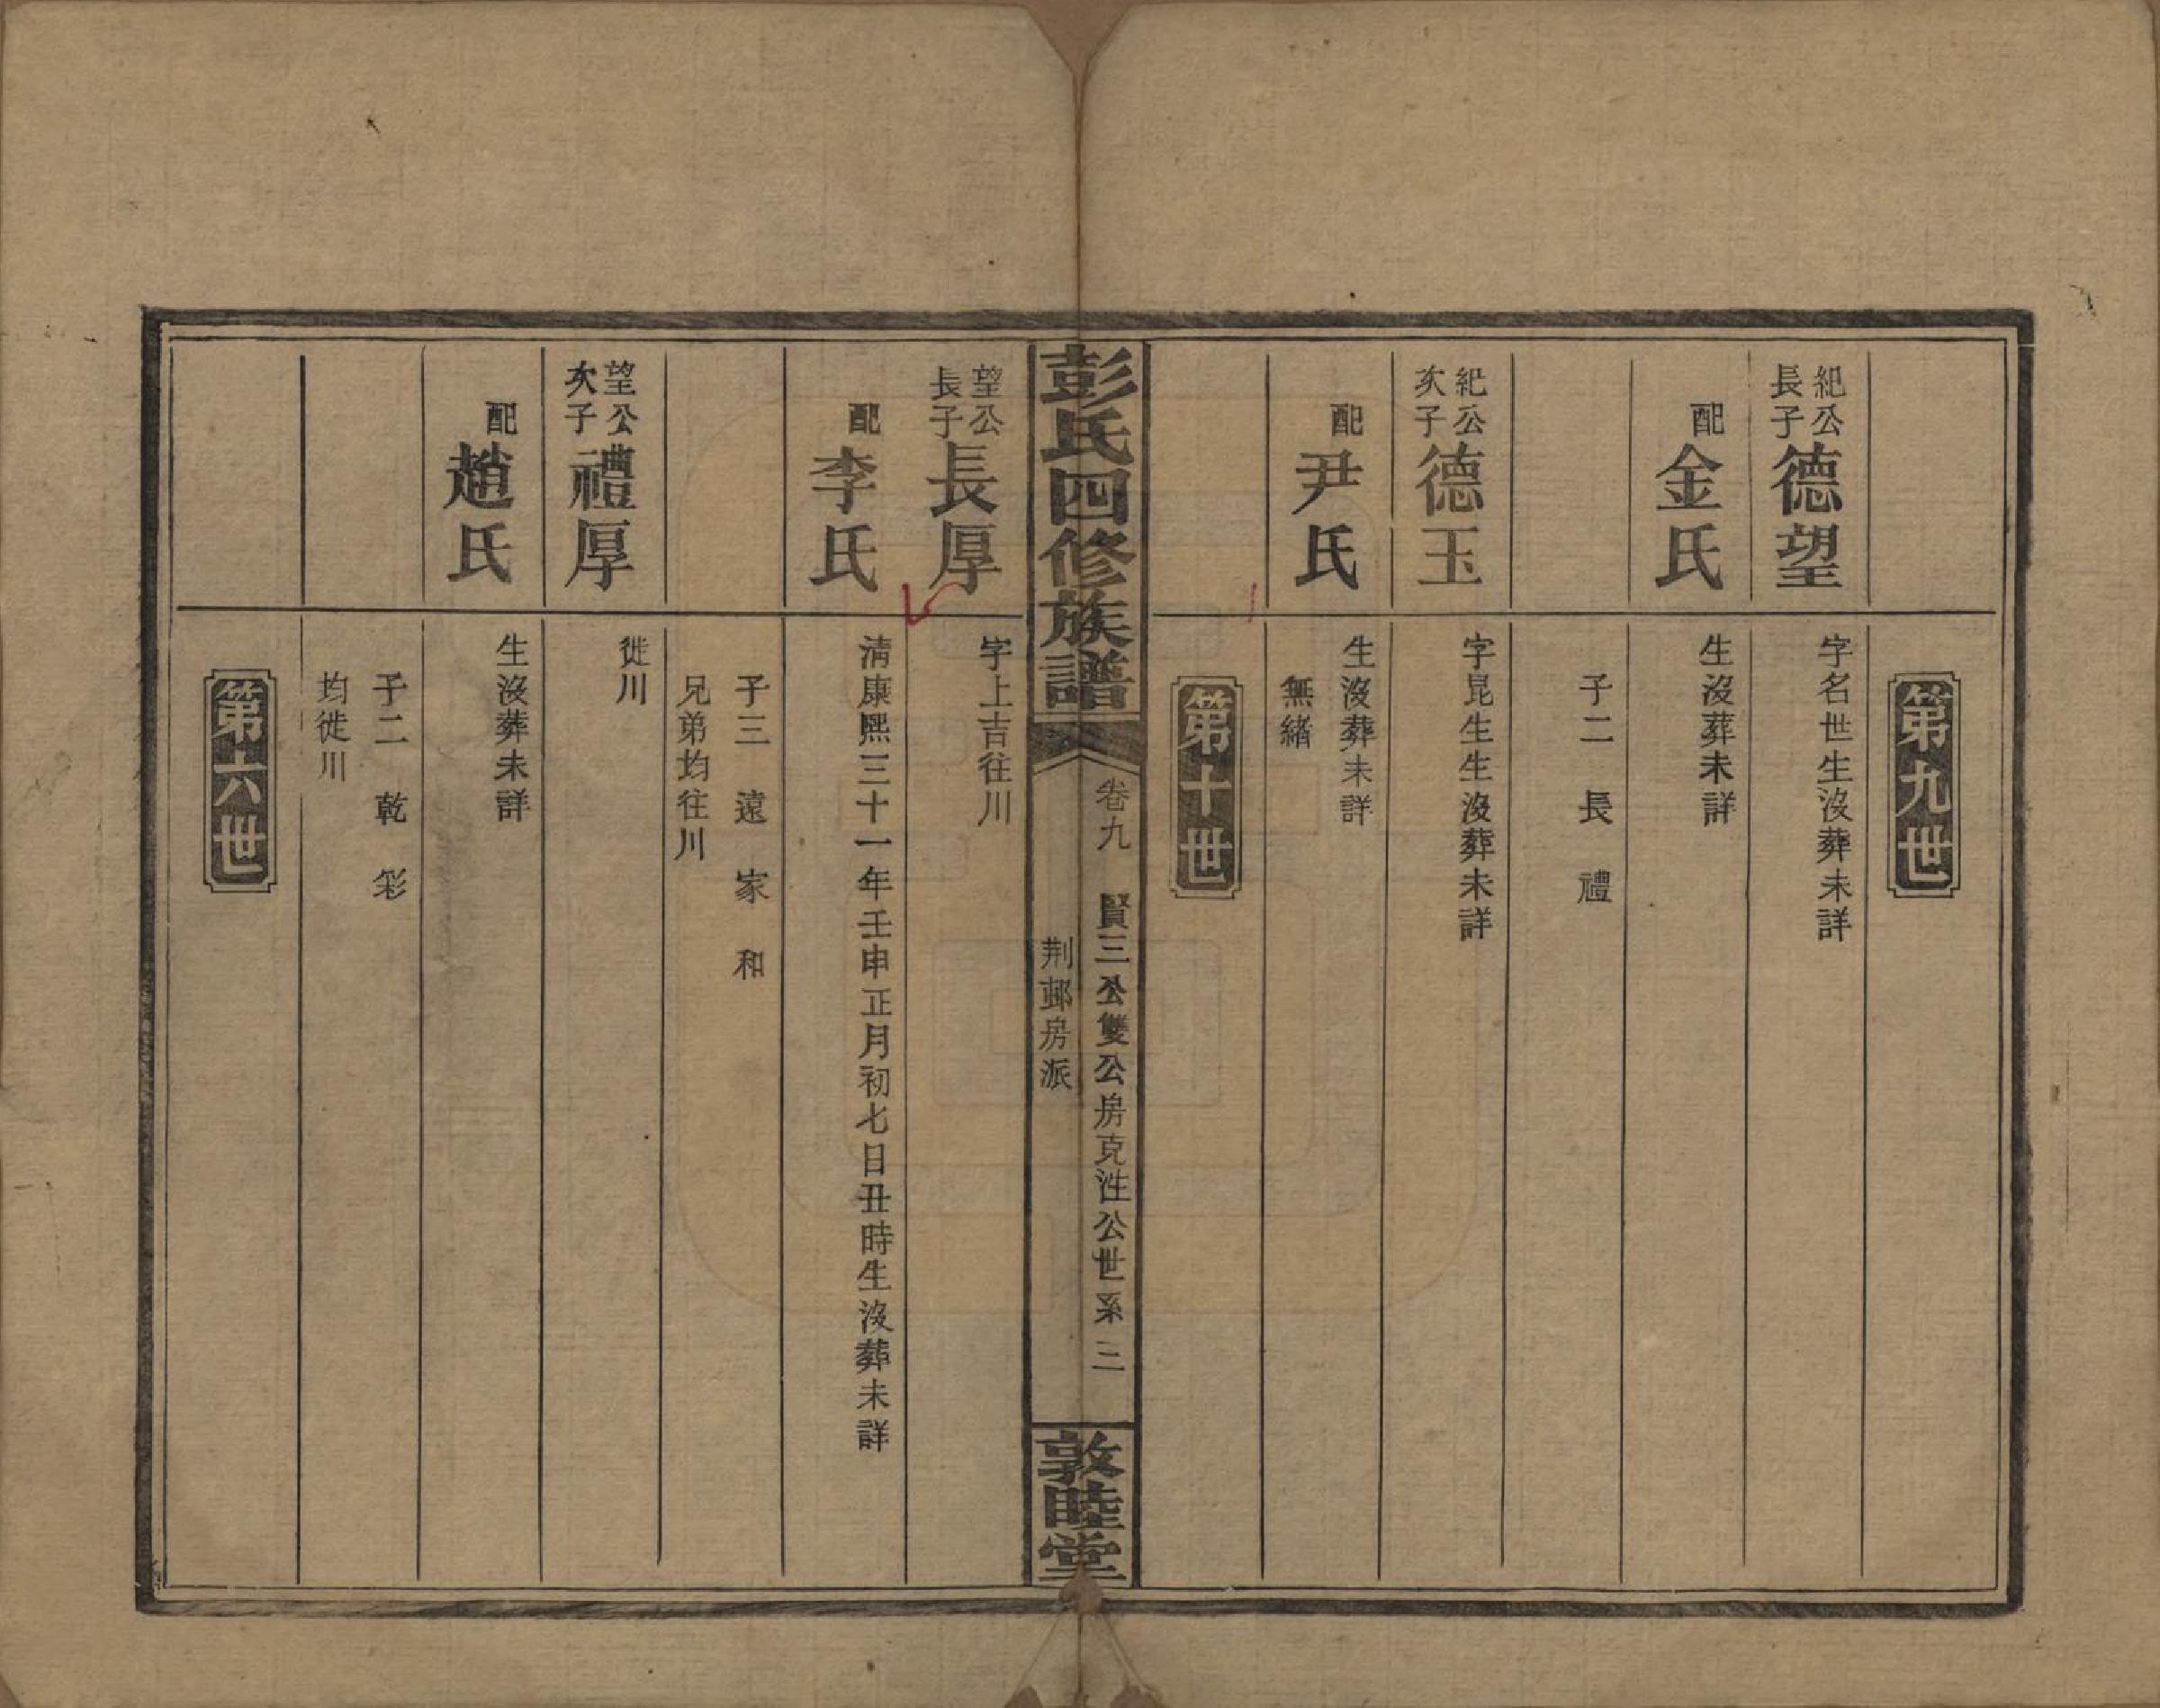 第九世
紀公長子德望
字名世生沒葬未詳
配金氏
生沒葬未詳
子二 長 禮
紀公次子德玉
字昆生生沒葬未詳
配尹氏
生沒葬未詳
無緒
第十世
彭氏四修族譜
卷九 賢三公雙公房克性公世系 二
荆邨房派
敦睦堂
望公長子長厚
字上吉往川
配李氏
清康熙三十一年壬申正月初七日丑時生沒葬未詳
子三 遠 家 和
兄弟均往川
望公次子禮厚
徙川
配趙氏
生沒葬未詳
子二 乾 彩
均徙川
第六世